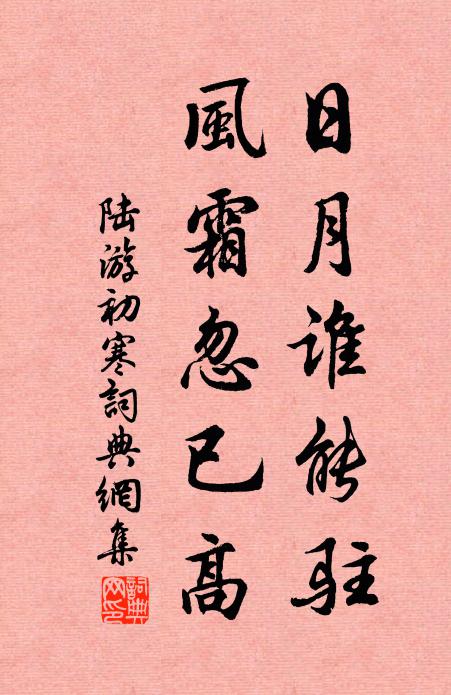 日月谁能驻
風霜忽已高
陆游初寒詞典網集
詞典网印